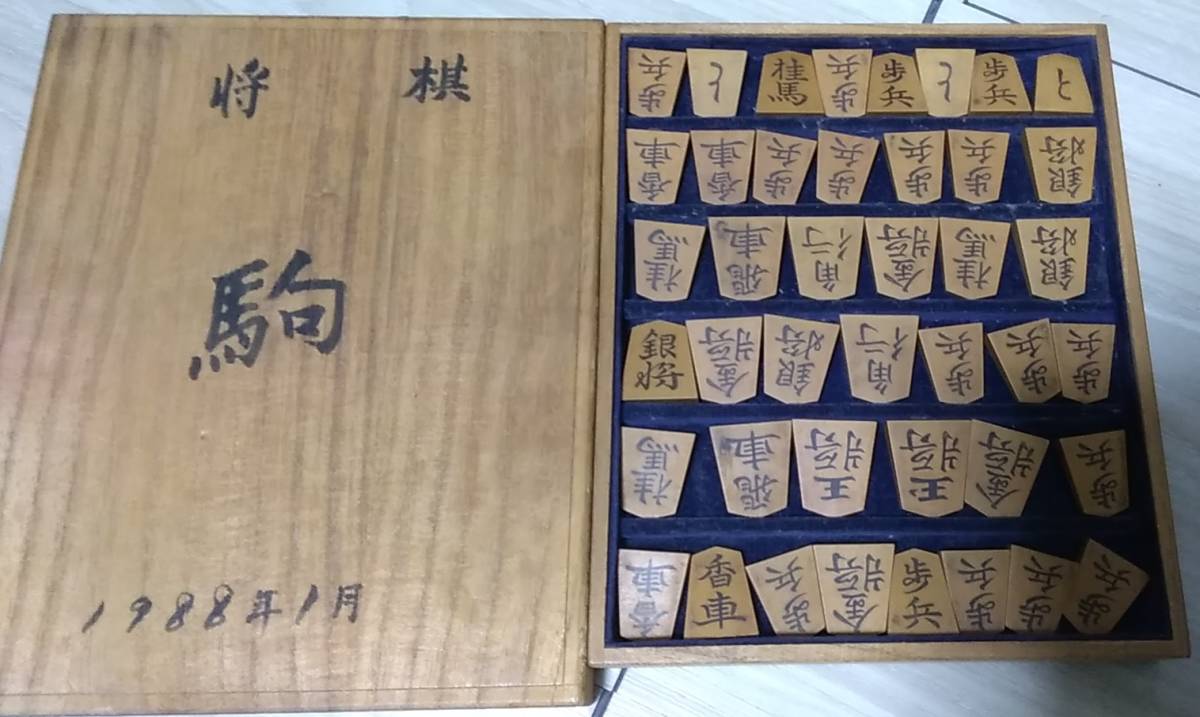 将 棋
駒
1988年1月
歩兵 と 桂馬 歩兵 歩兵 と 歩兵 と
香車 香車 歩兵 歩兵 歩兵 歩兵 銀将
桂馬 飛車 角行 金将 桂馬 銀将
銀将 金将 銀将 角行 歩兵 歩兵 歩兵
桂馬 飛車 王将 玉将 金将 歩兵
香車 香車 歩兵 金将 歩兵 歩兵 歩兵 歩兵